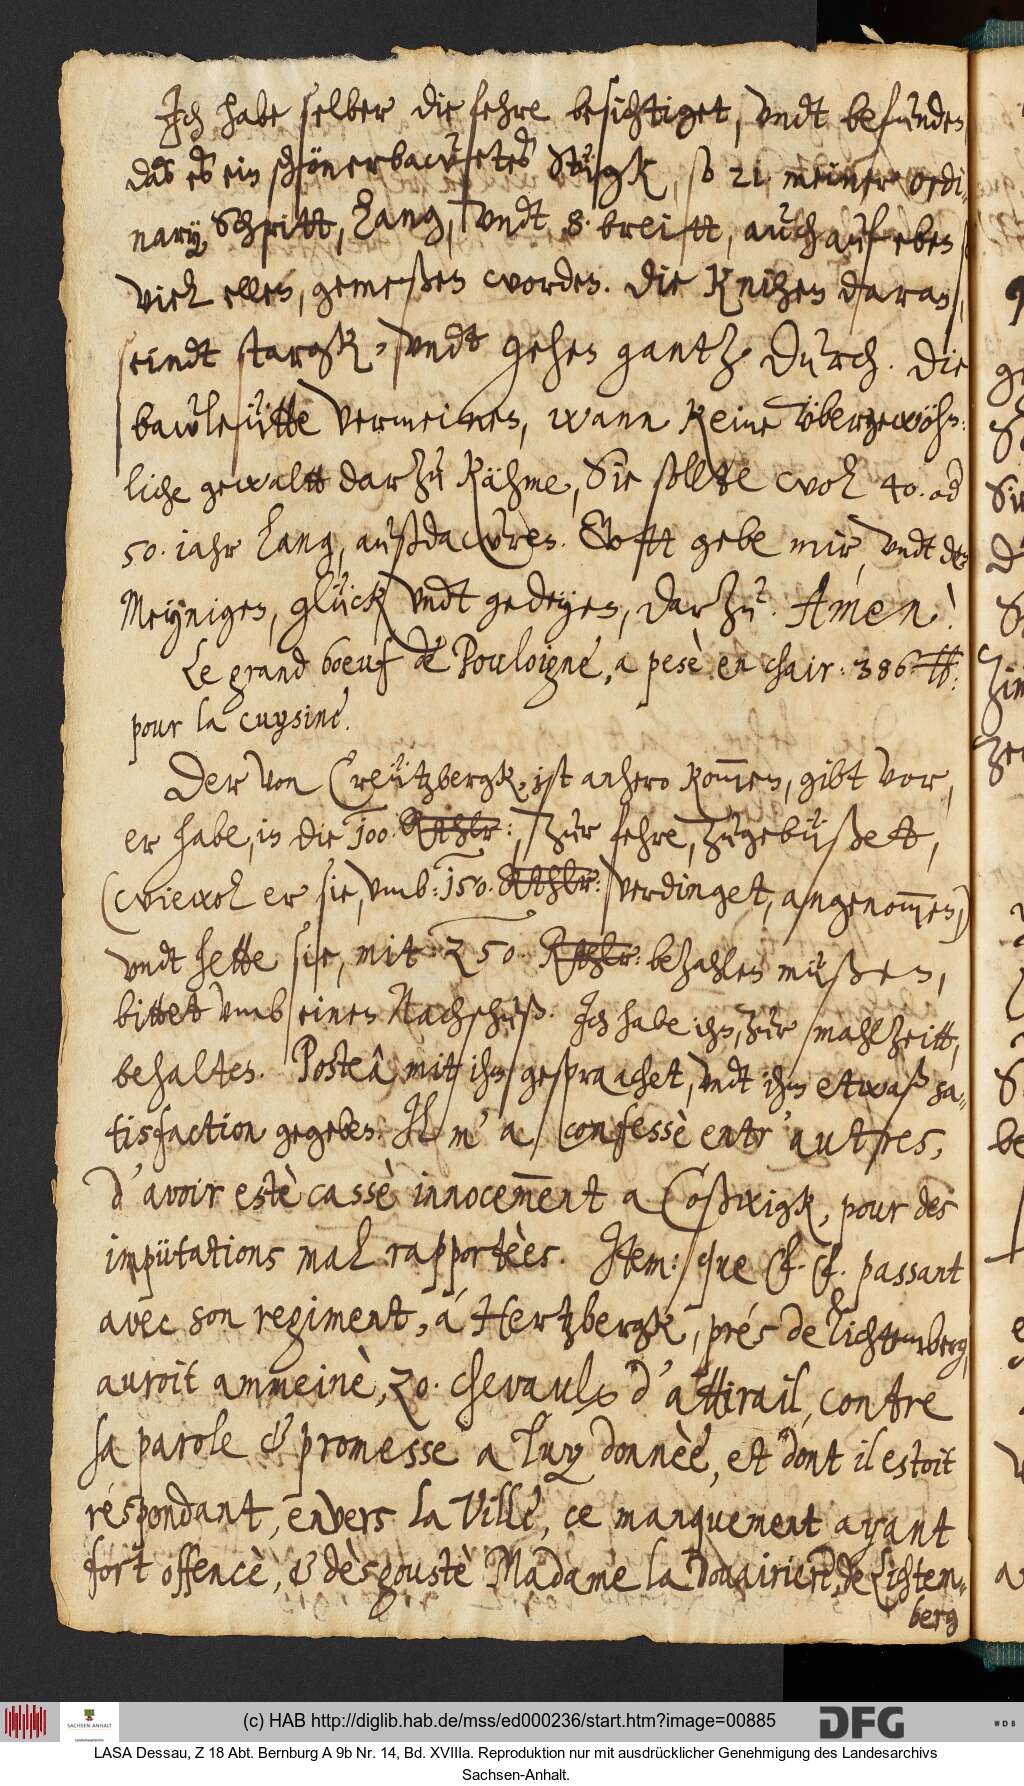 Ich habe selber die fehre besichtiget, vndt befunden
daß eß ein schönerbawetes Stügk, so 21 meiner ordi¬
nary Schritt, lang, vndt 8. breitt, auch auf eben so
viel ellen, gemeßen worden. Die Knihen daran,
seindt stargk, vndt gehen gantz durch. Die
bawleütte vermeinen, wann keine vbergewöhn¬
liche gewaltt darzu kähme, Sie sollte wol 40. od
50. iahr lang, außdawren. Gott gebe mir, vndt den
Meynigen, glück vndt gedeyen, darzu. Amen!
Le grand boeuf de Pouloigne, a pesè en chair: 386 ℔:
pour la cuysine.
Der von Creützbergk, ist anhero kommen, gibt vor,
er habe, in die 100 Rthlr:, zur fehre, zugebüßett,
(wiewol er sie, vmb: 150. Rthlr: verdinget, angenommen,)
vndt hette sie, mit 250. Rthlr: bezahlen müßen,
bittet vmb einen Nachschuß. Ich habe ihn, zur mahlzeitt,
behalten. Posteâ mitt ihm gespraachet, vndt ihm etwaß sa¬
tisfaction gegeben. Il m' a confessè entr' autres,
d'avoir estè cassè innocemment a Coßwigk, pour des
impütations mal rapportèes. Item: que Cf. Cf. passant
avec son regiment, á Hertzbergk, prés de Lichtemberg,
auroit ammeinè, 20. chevaulx d'attirail, contre
sa parole & promesse a luy donnèe, et dont il estoit
respondant, envers la Ville, ce manquement ayant
fort offencè, & dèsgoustè Madame la Douairiere, de Lichtem¬
berg
(c) HAB http://diglib.hab.de/mss/ed000236/start.htm?image=00885
SACHSEN-ANHALT
DFG
WDB
LASA Dessau, Z 18 Abt. Bernburg A 9b Nr. 14, Bd. XVIIIa. Reproduktion nur mit ausdrücklicher Genehmigung des Landesarchivs
Sachsen-Anhalt.